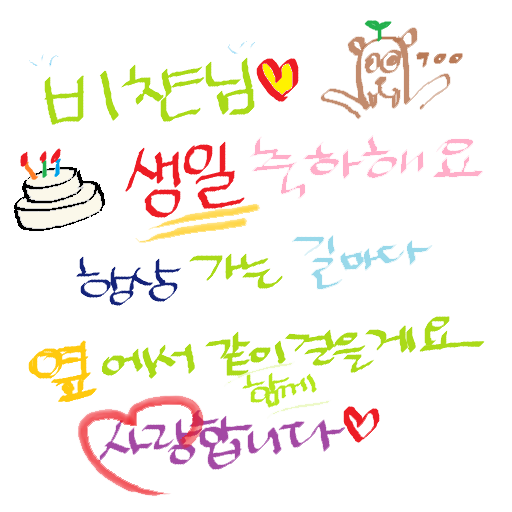 비챤님
생일 축하해요
항상 가는 길마다
옆에서 같이 걸을게요
함께
사랑합니다